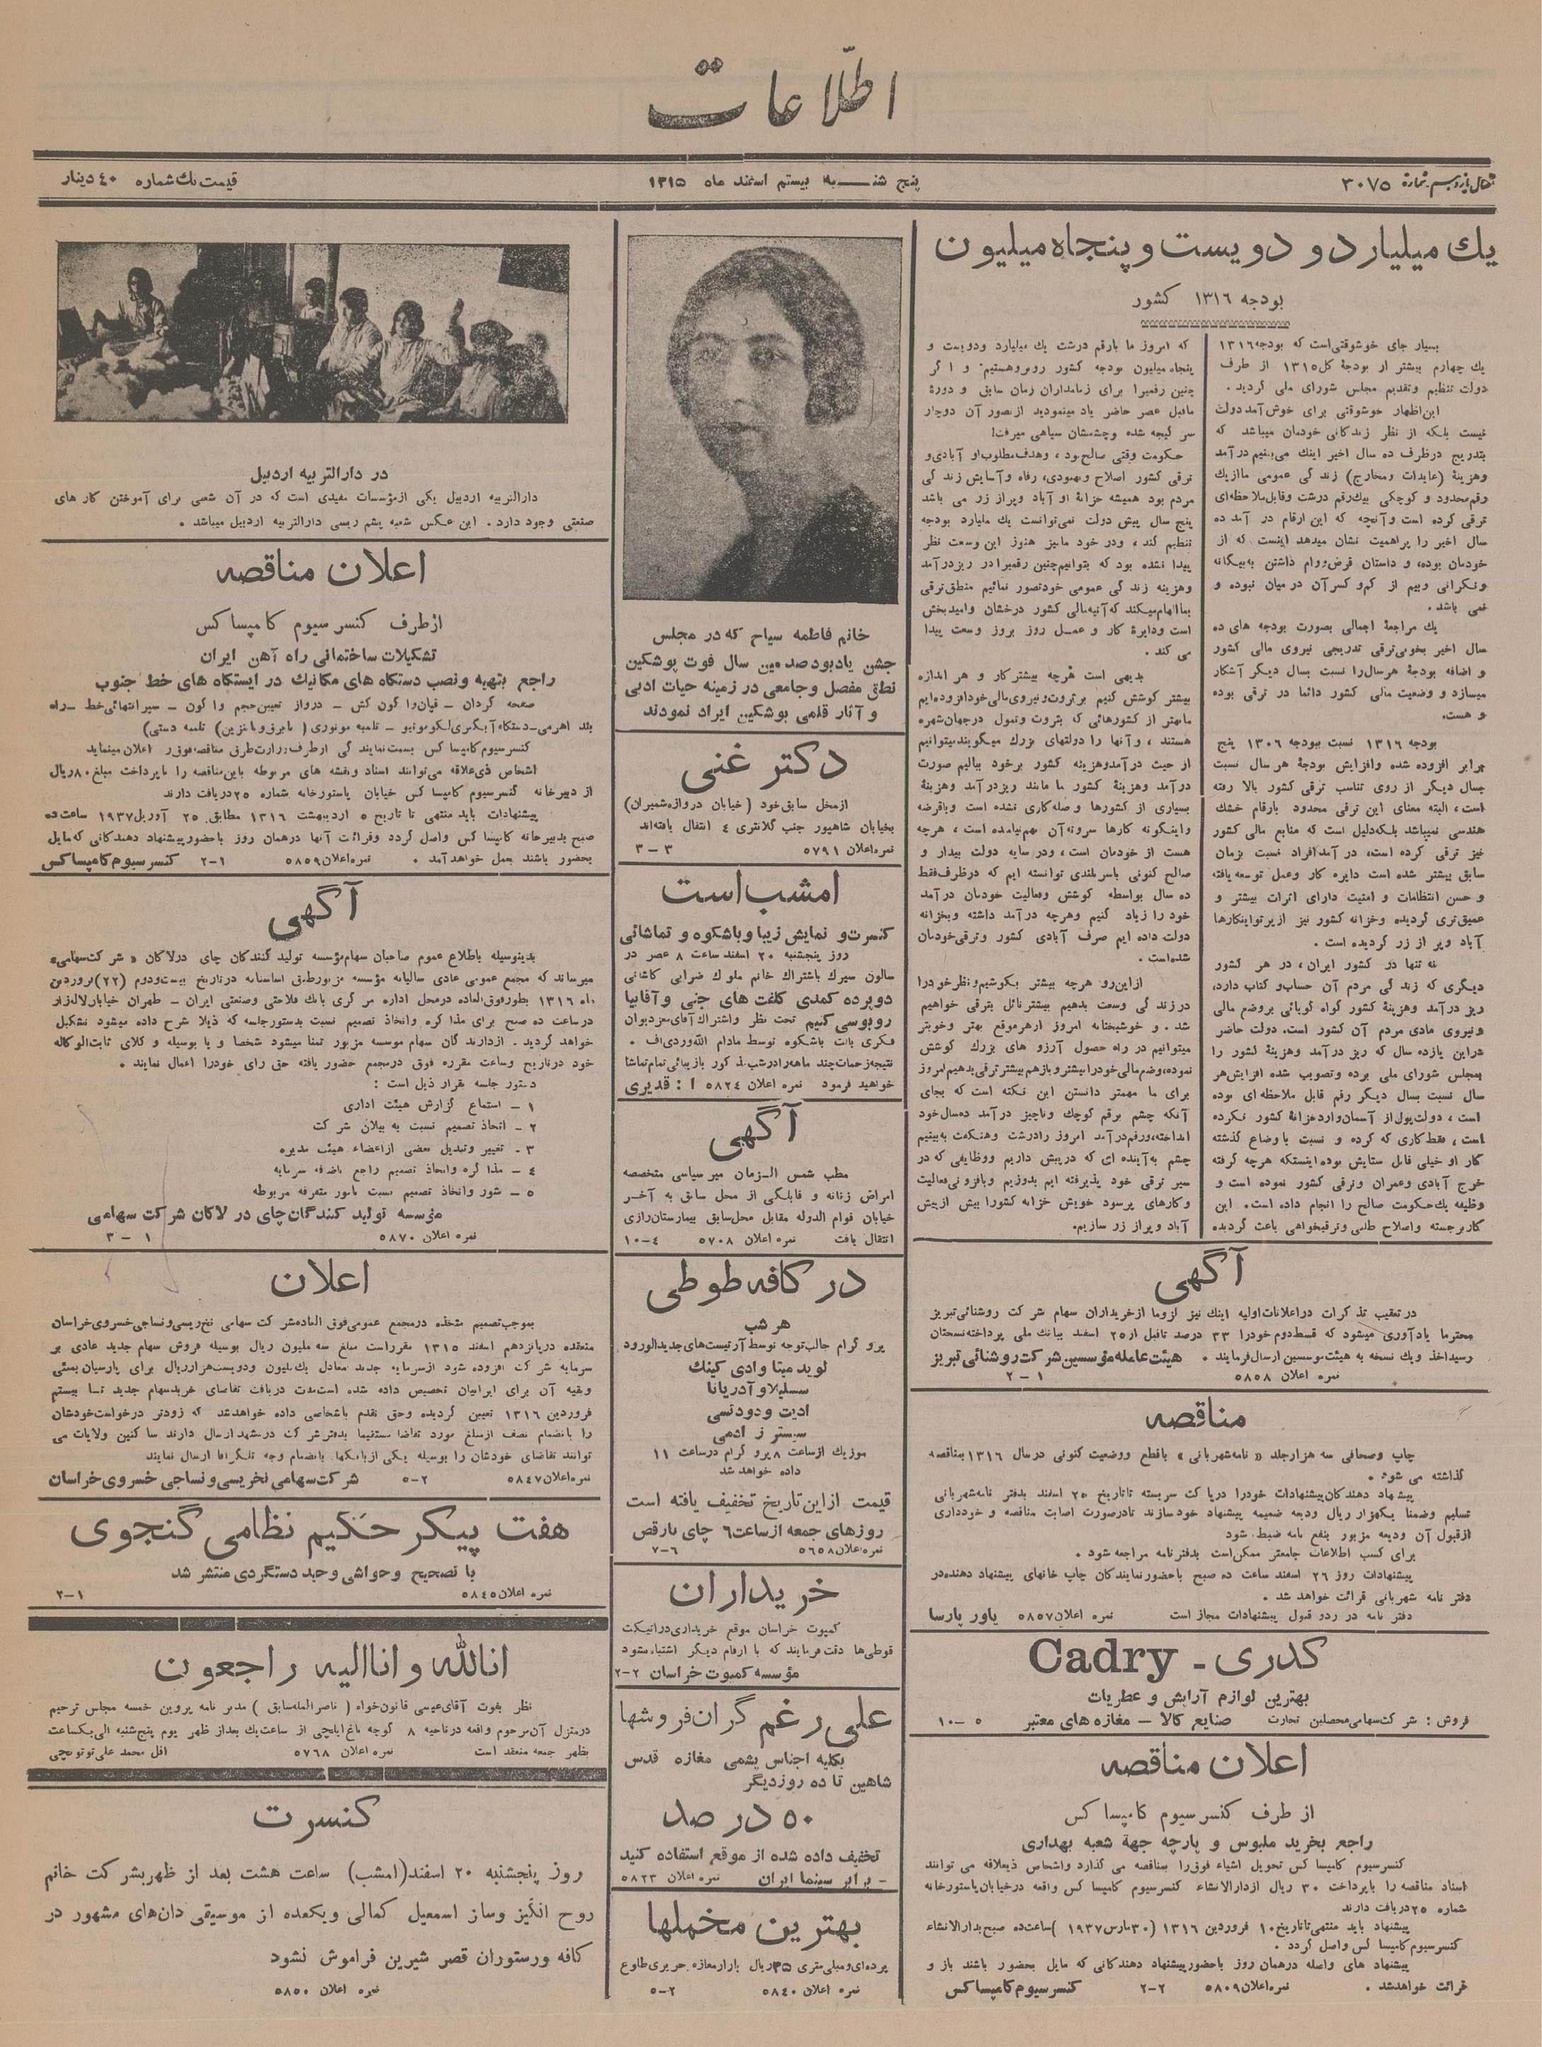 اطلاعات
سال یازدهم شماره ۳۰۷۵
پنج شنبه بیستم اسفند ماه ۱۳۱۵
قیمت تك شماره ۴۰ دینار
یك میلیارد و دویست و پنجاه میلیون
بودجه ۱۳۱۶ کشور
بسیار جای خوشوقتی است که بودجه ۱۳۱۶
یك چهارم بیشتر از بودجهٔ کل ۱۳۱۵ از طرف
دولت تنظیم وتقدیم مجلس شورای ملی گردید .
این اظهار خوشوقتی برای خوش آمد دولت
نیست بلکه از نظر زندگانی خودمان میباشد که
بتدریج درظرف ده سال اخیر اینك می بینیم درآمد
وهزینهٔ (عایدات ومخارج) زند گی عمومی ما از یك
رقم محدود و کوچکی بیك رقم درشت وقابل ملاحظه‌ای
ترقی کرده است و آنچه که این ارقام در آمد ده
سال اخیر را پراهمیت نشان میدهد اینست که از
خودمان بوده، و داستان قرض ووام داشتن به بیگانه
ونگرانی وبیم از کم و کسر آن درمیان نبوده و
نمی باشد .
یك مراجعهٔ اجمالی بصورت بودجه های ده
سال اخیر بخوبی ترقی تدریجی نیروی مالی کشور
و اضافه بودجهٔ هرسال را نسبت بسال دیگر آشکار
میسازد و وضعیت مالی کشور دائما در ترقی بوده
و هست.
بودجه ۱۳۱۶ نسبت ببودجه ۱۳۰۶ پنج
برابر افزوده شده وافزایش بودجهٔ هر سال نسبت
بسال دیگر از روی تناسب ترقی کشور بالا رفته
است، البته معنای این ترقی محدود بارقام خشك
هندسی نمیباشد بلکه دلیل است که منابع مالی کشور
نیز ترقی کرده است، در آمد افراد نسبت بزمان
سابق بیشتر شده است دایره کار وعمل توسعه یافته
و حسن انتظامات و امنیت دارای اثرات بیشتر و
عمیق تری گردیده وخزانه کشور نیز از پرتو اینکارها
آباد وپر از زر گردیده است .
نه تنها در کشور ایران، در هر کشور
دیگری که زند گی مردم آن حساب و کتاب دارد،
ریز درآمد وهزینهٔ کشور گواه گویائی بروضع مالی
ونیروی مادی مردم آن کشور است. دولت حاضر
دراین یازده سال که ریز درآمد وهزینهٔ کشور را
بمجلس شورای ملی برده وتصویب شده افزایش هر
سال نسبت بسال دیگر رقم قابل ملاحظه ای بوده
است ، دولت پول از آسمان وارد خزانهٔ کشور نکرده
است، فقط کاری که کرده و نسبت با وضاع گذشته
کار او خیلی قابل ستایش بوده اینستکه هرچه گرفته
خرج آبادی وعمران وترقی کشور نموده است و
وظیفه یك حکومت صالح را انجام داده است. این
کار برجسته واصلاح طلبی وترقیخواهی باعث گردیده
که امروز ما بارقم درشت یك میلیارد ودویست و
پنجاه میلیون بودجه کشور روبروهستیم؛ و ا گر
چنین رقمیرا برای زمامداران زمان سابق و دورهٔ
ماقبل عصر حاضر یاد مینمودید ازتصور آن دوچار
سر گیجه شده وچشمشان سیاهی میرفت!
حکومت وقتی صالح بود ، وهدف مطلوب او آبادی و
ترقی کشور اصلاح وبهبودی، رفاه وآسایش زند گی
مردم بود همیشه خزانهٔ او آباد وپراز زر می باشد
پنج سال پیش دولت نمی توانست یك ملیارد بودجه
تنظیم کند ، ودر خود ما نیز هنوز این وسعت نظر
پیدا نشده بود که بتوانیم چنین رقمیرا در ریز درآمد
وهزینه زند گی عمومی خودتصور نمائیم منطق ترقی
بما الهام میکند که آتیه مالی کشور درخشان وامیدبخش
است ودایرهٔ کار و عمل روز بروز وسعت پیدا
می کند .
بدیهی است هرچه بیشتر کار و هر اندازه
بیشتر کوشش کنیم برثروت ونیروی مالی خودافزوده ایم
ما بهتر از کشورهائی که بثروت وتمول درجهان شهره
هستند ، وآنها را دولتهای بزرك میگویند میتوانیم
از حیث درآمد وهزینه کشور برخود ببالیم صورت
درآمد وهزینهٔ کشور ما مانند ریز درآمد وهزینهٔ
بسیاری از کشورها وصله کاری نشده است وباقرضه
واینگونه کارها سروته آن بهم نیامده است ، هرچه
هست از خودمان است ، ودر سایه دولت بیدار و
صالح کنونی باسربلندی توانسته ایم که درظرف فقط
ده سال بواسطه کوشش وفعالیت خودمان درآمد
خود را زیاد کنیم وهرچه درآمد داشته وبخزانه
دولت داده ایم صرف آبادی کشور وترقی خودمان
شده است.
از این رو هرچه بیشتر بکوشیم ونظر خود را
در زند گی وسعت بدهیم بیشتر نائل بترقی خواهیم
شد . و خوشبختانه امروز ازهر موقع بهتر وخوبتر
میتوانیم در راه حصول آرزو های بزرك کوشش
نموده، وضع مالی خودرا بیشتر وبازهم بیشتر ترقی بدهیم امروز
برای ما مهمتر دانستن این نکته است که بجای
آنکه چشم برقم کوچك وناچیز درآمد ده سال خود
انداخته، ورقم درآمد امروز رادرشت وهنگفت به بینیم
چشم به آینده ای که درپیش داریم ووظایفی که در
سیر ترقی خود پذیرفته ایم بدوزیم وبافزونی فعالیت
وکارهای پرسود خویش خزانه کشوررا بیش ازپیش
آباد وپراز زر سازیم.
آگهی
در تعقیب تذ کرات در اعلانات اولیه اینك نیز لزوما از خریداران سهام شر کت روشنائی تبریز
محترما یاد آوری میشود که قسط دوم خودرا ۳۳ درصد تاقبل از ۲۵ اسفند ببانك ملی پرداخته نسختان
رسید اخذ ویك نسخه به هیئت موسسین ارسال فرمایند . هیئت عامله مؤسسین شرکت روشنائی تبریز
نمره اعلان ۵۸۵۸ ۱ – ۲
مناقصه
چاپ وصحافی سه هزار جلد « نامه شهربانی » باقطع ووضعیت کنونی درسال ۱۳۱۶ بمناقصه
گذاشته می شود .
پیشنهاد دهند کان پیشنهادات خودرا درپا کت سربسته تاتاریخ ۲۵ اسفند بدفتر نامه شهربانی
تسلیم وضمنا یکهزار ریال ودیعه ضمیمه پیشنهاد خود سازند تادرصورت اصابت مناقصه و خودداری
ازقبول آن ودیعه مزبور بنفع نامه ضبط شود
برای کسب اطلاعات جامعتر ممکن است بدفتر نامه مراجعه شود .
پیشنهادات روز ۲۶ اسفند ساعت ده صبح باحضور نمایند کان چاپ خانهای پیشنهاد دهنده در
دفتر نامه شهربانی قرائت خواهد شد .
دفتر نامه در رد و قبول پیشنهادات مجاز است نمره اعلان ۵۸۵۷ یاور پارسا
کدری - Cadry
بهترین لوازم آرایش و عطریات
فروش : شر کت سهامی محصلین تجارت صنایع کالا – مغازه های معتبر ۵ – ۱۰
اعلان مناقصه
از طرف کنسرسیوم کامپساکس
راجع بخرید ملبوس و پارچه جهة شعبه بهداری
کنسرسیوم کامپسا کس تحویل اشیاء فوق را بمناقصه می گذارد واشخاص ذیعلاقه می توانند
اسناد مناقصه را باپرداخت ۳۰ ریال ازدارالانشاء کنسرسیوم کامپسا کس واقعه درخیابان پاستور خانه
شماره ۲۵ دریافت دارند
پیشنهاد باید منتهی تاتاریخ ۱۰ فروردین ۱۳۱۶ (۳۰ مارس ۱۹۳۷) ساعت ده صبح بدارالانشاء
کنسرسیوم کامپسا کس واصل گردد .
پیشنهاد های واصله درهمان روز باحضور پیشنهاد دهندکانی که مایل بحضور باشند باز و
قرائت خواهدشد . نمره اعلان ۵۸۰۹ ۲–۲ کنسرسیوم کامپساکس
خانم فاطمه سیاح که در مجلس
جشن یادبود صدمین سال فوت پوشکین
نطق مفصل وجامعی در زمینه حیات ادبی
و آثار قلمی پوشکین ایراد نمودند
دکتر غنی
ازمحل سابق خود (خیابان دروازه شمیران)
بخیابان شاهپور جنب کلانتری ٤ انتقال یافته‌اند
نمره اعلان ۵۷۹۱ ۳ – ۳
امشب است
کنسرت و نمایش زیبا وباشکوه و تماشائی
روز پنجشنبه ۲۰ اسفند ساعت ۸ عصر در
سالون سیرك باشتراك خانم ملوك ضرابی کاشانی
دو پرده کمدی کلفت های جنی و آقابیا
روبوسی کنیم تحت نظر واشتراك آقای معزدیوان
فکری بالت باشکوه توسط مادام الله وردی اف .
نتیجه زحمات چند ماهه رادرشب مذ کور بازیبائی تمام تماشا
خواهید فرمود نمره اعلان ۵۸۲۴ ا : قدیری
آگهی
مطب شمس الزمان میرسپاسی متخصصه
امراض زنانه و قابلگی از محل سابق به آخر
خیابان قوام الدوله مقابل محل سابق بیمارستان رازی
انتقال یافت نمره اعلان ۵۷۰۸ ۴–۱۰
در کافه طوطی
هر شب
پرو گرام جالب توجه توسط آرتیست های جدیدالورود
لوید میتا وادی کینك
سسیلیا و آدریانا
ادیت و دودتسی
سیستر ز ادمی
موزیك ازساعت ۸ پرو گرام درساعت ۱۱
داده خواهد شد
قیمت از این تاریخ تخفیف یافته است
روزهای جمعه از ساعت ۶ چای با رقص
نمره اعلان ۵۶۵۸ ۶–۷
خریداران
کمپوت خراسان موقع خریداری در اتیکت
قوطی ها دقت فرمایند که با ارقام دیگر اشتباه نشود
مؤسسه کمپوت خراسان ۲–۲
علی رغم گران فروشها
بکلیه اجناس پشمی مغازه قدس
شاهین تا ده روز دیگر
۵۰ در صد
تخفیف داده شده از موقع استفاده کنید
– برابر سینما ایران نمره اعلان ۵۸۲۳
بهترین مخملها
پرده‌ای و مبلی متری ۳۵ ریال بازار مغازه حریری طلوع
نمره اعلان ۵۸۴۰ ۲–۵
در دارالتربیه اردبیل
دارالتربیه اردبیل یکی ازمؤسسات مفیدی است که در آن شعبی برای آموختن کار های
صنعتی وجود دارد . این عکس شعبه پشم ریسی دارالتربیه اردبیل میباشد .
اعلان مناقصه
ازطرف کنسرسیوم کامپساکس
تشکیلات ساختمانی راه آهن ایران
راجع بتهیه ونصب دستگاه های مکانیك در ایستگاه های خط جنوب
صفحه گردان – قپان واگون کش – درواز تعیین حجم واگون – سپر انتهائی خط – راه
بند اهرمی – دستگاه آبگیری لکوموتیو – تلمبه موتوری (بابرق وبابنزین) تلمبه دستی)
کنسرسیوم کامپسا کس بسمت نمایند گی ازطرف وزارت طرق مناقصه فوق را اعلان مینماید
اشخاص ذی علاقه می توانند اسناد ونقشه های مربوطه باین مناقصه را باپرداخت مبلغ ۸۰ ریال
از دبیرخانه کنسرسیوم کامپسا کس خیابان پاستور خانه شماره ۲۵ دریافت دارند
پیشنهادات باید منتهی تا تاریخ ۵ اردیبهشت ۱۳۱۶ مطابق ۲۵ آوریل ۱۹۳۷ ساعت ده
صبح بدبیرخانه کامپسا کس واصل گردد وقرائت آنها درهمان روز باحضور پیشنهاد دهندکانی که مایل
بحضور باشند بعمل خواهد آمد . نمره اعلان ۵۸۵۹ ۱–۲ کنسرسیوم کامپساکس
آگهی
بدینوسیله باطلاع عموم صاحبان سهام مؤسسه تولید کنند گان چای درلاکان « شر کت سهامی»
میرساند که مجمع عمومی عادی سالیانه مؤسسه مزبور طبق اساسنامه درتاریخ بیست ودوم (۲۲) فروردین
ماه ۱۳۱۶ بطور فوق العاده درمحل اداره مر کزی بانك فلاحتی وصنعتی ایران – طهران خیابان لاله زار
درساعت ده صبح برای مذا کره واتخاذ تصمیم نسبت بدستور جلسه که ذیلا شرح داده میشود تشکیل
خواهد گردید . ازدارند گان سهام موسسه مزبور تمنا میشود شخصا و یا بوسیله و کلای ثابت الوکاله
خود درتاریخ وساعت مقرره فوق درمجمع حضور یافته حق رای خودرا اعمال نمایند .
دستور جلسه بقرار ذیل است :
۱ – استماع گزارش هیئت اداری
۲ – اتخاذ تصمیم نسبت به بیلان شر کت
۳ – تغییر وتبدیل بعضی ازاعضاء هیئت مدیره
٤ – مذا کره واتخاذ تصمیم راجع باضافه سرمایه
۵ – شور واتخاذ تصمیم نسبت بامور متفرقه مربوطه
مؤسسه تولید کنندگان چای در لاکان شرکت سهامی
نمره اعلان ۵۸۷۰ ۱ – ۳
اعلان
بموجب تصمیم متخذه درمجمع عمومی فوق العاده شر کت سهامی نخ ریسی و نساجی خسروی خراسان
منعقده در پانزدهم اسفند ۱۳۱۵ مقرراست مبلغ سه ملیون ریال بوسیله فروش سهام جدید عادی بر
سرمایه شر کت افزوده شود ازسرمایه جدید معادل یك ملیون ودویست هزار ریال برای پارسیان بمبئی
وبقیه آن برای ایرانیان تخصیص داده شده است مدت دریافت تقاضای خرید سهام جدید تا بیستم
فروردین ۱۳۱۶ تعیین گردیده وحق تقدم باشخاصی داده خواهدشد که زودتر درخواست خودشان
را بانضمام نصف ازمبلغ مورد تقاضا مستقیما بدفتر شر کت در مشهد ارسال دارند سا کنین ولایات می
توانند تقاضای خودشان را بوسیله یکی از بانکها بانضمام وجه تلگرافا ارسال نمایند
نمره اعلان ۵۸۴۷ ۲–۵ شرکت سهامی نخریسی و نساجی خسروی خراسان
هفت پیکر حکیم نظامی گنجوی
با تصحیح وحواشی وحید دستگردی منتشر شد
نمره اعلان ۵۸۴۵ ۱–۲
انالله و اناالیه راجعون
نظر بفوت آقای عیسی قانون خواه ( ناصرالمله سابق ) مدیر نامه پروین خمسه مجلس ترحیم
درمنزل آن مرحوم واقعه درناحیه ۸ کوچه باغ ایلچی از ساعت یك بعداز ظهر یوم پنج شنبه الی یکساعت
بظهر جمعه منعقد است نمره اعلان ۵۷۶۸ اقل محمد علی توتونچی
کنسرت
روز پنجشنبه ۲۰ اسفند(امشب) ساعت هشت بعد از ظهر بشرکت خانم
روح انگیز وساز اسمعیل کمالی ویکعده از موسیقی دان‌های مشهور در
کافه ورستوران قصر شیرین فراموش نشود
نمره اعلان ۵۸۵۰